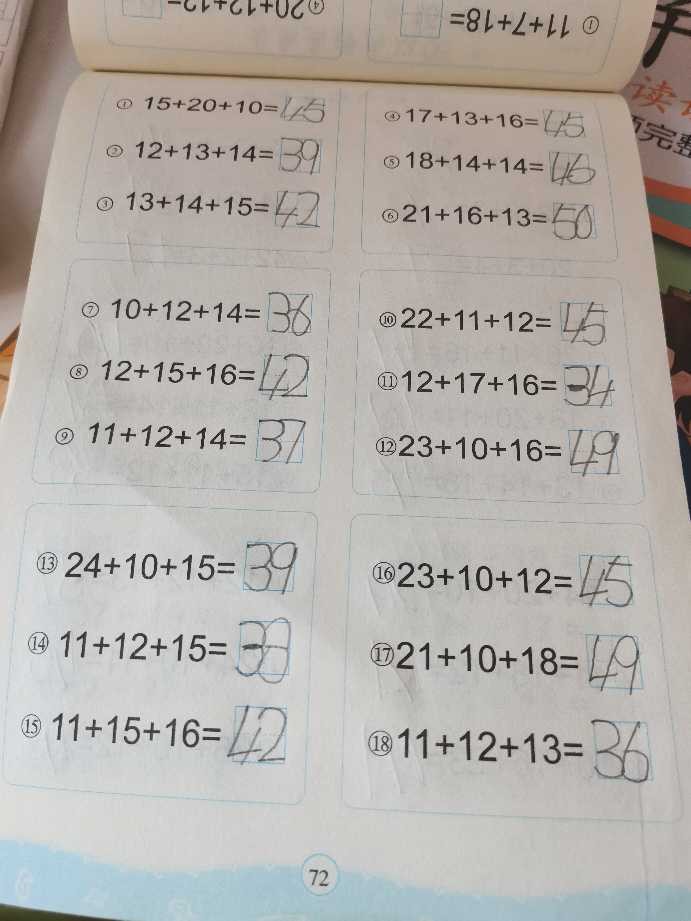 ④ 20+12+12=
① 11+7+18=
读
完整
① 15+20+10=45
② 12+13+14=39
③ 13+14+15=42
④ 17+13+16=45
⑤ 18+14+14=46
⑥ 21+16+13=50
⑦ 10+12+14=36
⑧ 12+15+16=42
⑨ 11+12+14=37
⑩ 22+11+12=45
⑪ 12+17+16=34
⑫ 23+10+16=49
⑬ 24+10+15=39
⑭ 11+12+15=38
⑮ 11+15+16=42
⑯ 23+10+12=45
⑰ 21+10+18=49
⑱ 11+12+13=36
72